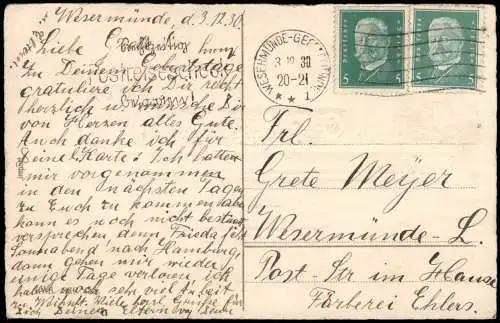 Wesermünde, d. 3.12.30.
Liebe
Zu Deinem Geburtstage
gratuliere ich Dir recht
herzlich u. wünsche Dir
von Herzen alles Gute.
Auch danke ich für
Deine Karte! Ich hatte
mir vorgenommen
in den nächsten Tagen
zu Euch zu kommen habe
kann es noch nicht bestimmt
versprechen denn Frieda fährt
Sonnabend nach Hamburg,
dann gehen mir wieder
einige Tage verloren, ich
habe noch sehr viel Arbeit
zu Weihn. Viele herzl. Grüße für
Dich Deinen Eltern
WESERMÜNDE-GEESTEMÜNDE
3 12 30
20-21
* * 1
5 5
5 5
Frl.
Grete Meyer
Wesermünde-L.
Post-Str im Hause
Färberei Ehlers.